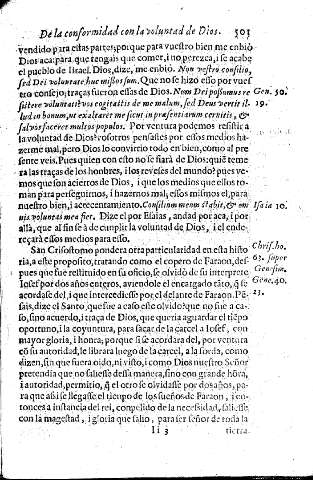 De la conformidad con la voluntad de Dios. 503
vendido para estas partes; porque para vuestro bien me embió
Dios aca: para que tengais que comer, i no perezca, i se acabe
el pueblo de Israel. Dios, dize, me embió. Non vestro consilio,
sed Dei voluntate huc missus sum. Que no se hizo esso por vues
tro consejo; traças fueron essas de Dios. Nom Dei possumus re Gen. 50.
sistere voluntati? vos cogitastis de me malum, sed Deus vertit il- 19.
lud in bonum, ut exaltaret me sicut in præsentiarum cernitis, &
salvos faceret multos populos. Por ventura podemos resistir a
la voluntad de Dios? vosotros pensastes por essos medios haz
zerme mal, pero Dios lo convirtio todo en bien, como al pre
sente veis. Pues quien con esto no se fiará de Dios: qué teme
ra las traças de los hombres, i los reveses del mundo? pues ve-
mos que son aciertos de Dios, i que los medios que ellos to-
mān para perseguirnos, i hazernos mal, essos mismos el, para
nuestro bien, i acrecentamiento. Consilium meum stabit, & om Isaiæ 10.
nis voluntas mea fiet. Dize el por Esaias, andad por aca, i por
allà, que al fin se à de cumplir la voluntad de Dios, i el ende-
reçarà essos medios para esso.
San Crisostomo pondera otra particularidad en esta histo Chrys. ho.
ria, a este proposito, tratando como el copero de Faraon, des- 63. super
pues que fue restituido en su oficio, se olvidò de su interprete Genesim.
Iosef por dos años enteros, aviendole el encargado tāto, q̄ se Gene. 40.
acordase del, i que intercediesse por el delante de Faraon. Pē- 23.
sais, dize el Santo, que fue a caso este olvido? que no fue a ca-
so, sino acuerdo, i traça de Dios, que queria aguardar el tiēpo
oportuno, i la coyuntura, para sacar de la carcel a Iosef, con
mayor gloria, i honra; porque si se acordara del, por ventura
cō su autoridad, le librara luego de la carcel, a la sorda, como
dizen, sin que fuera oido, ni visto, i como Dios nuestro Señor
pretendia que no saliesse dessa manera, sino con grande hōra,
i autoridad, permitio, q̄ el otro se olvidasse por dos años, pa-
ra que assi se llegasse el tiempo de los sueños de Faraon, i en-
tonces a instancia del rei, compelido de la necessidad, saliesse
con la magestad, i gloria que salio, para ser señor de toda la
Ii 3 tierra